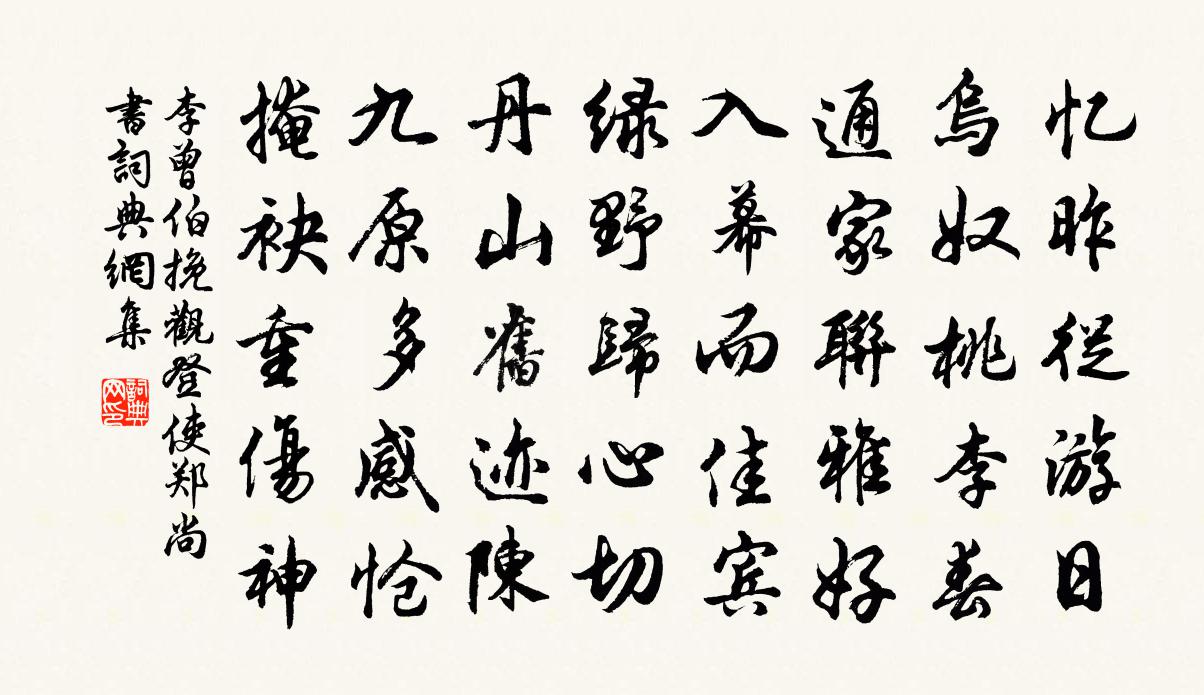 忆昨从游日
乌奴桃李春
通家联雅好
入幕而佳宾
绿野歸心切
丹山舊迹陳
九原多感怆
掩袂重傷神
李曾伯挽觀登使郑尚
書詞典網集
詞典网印